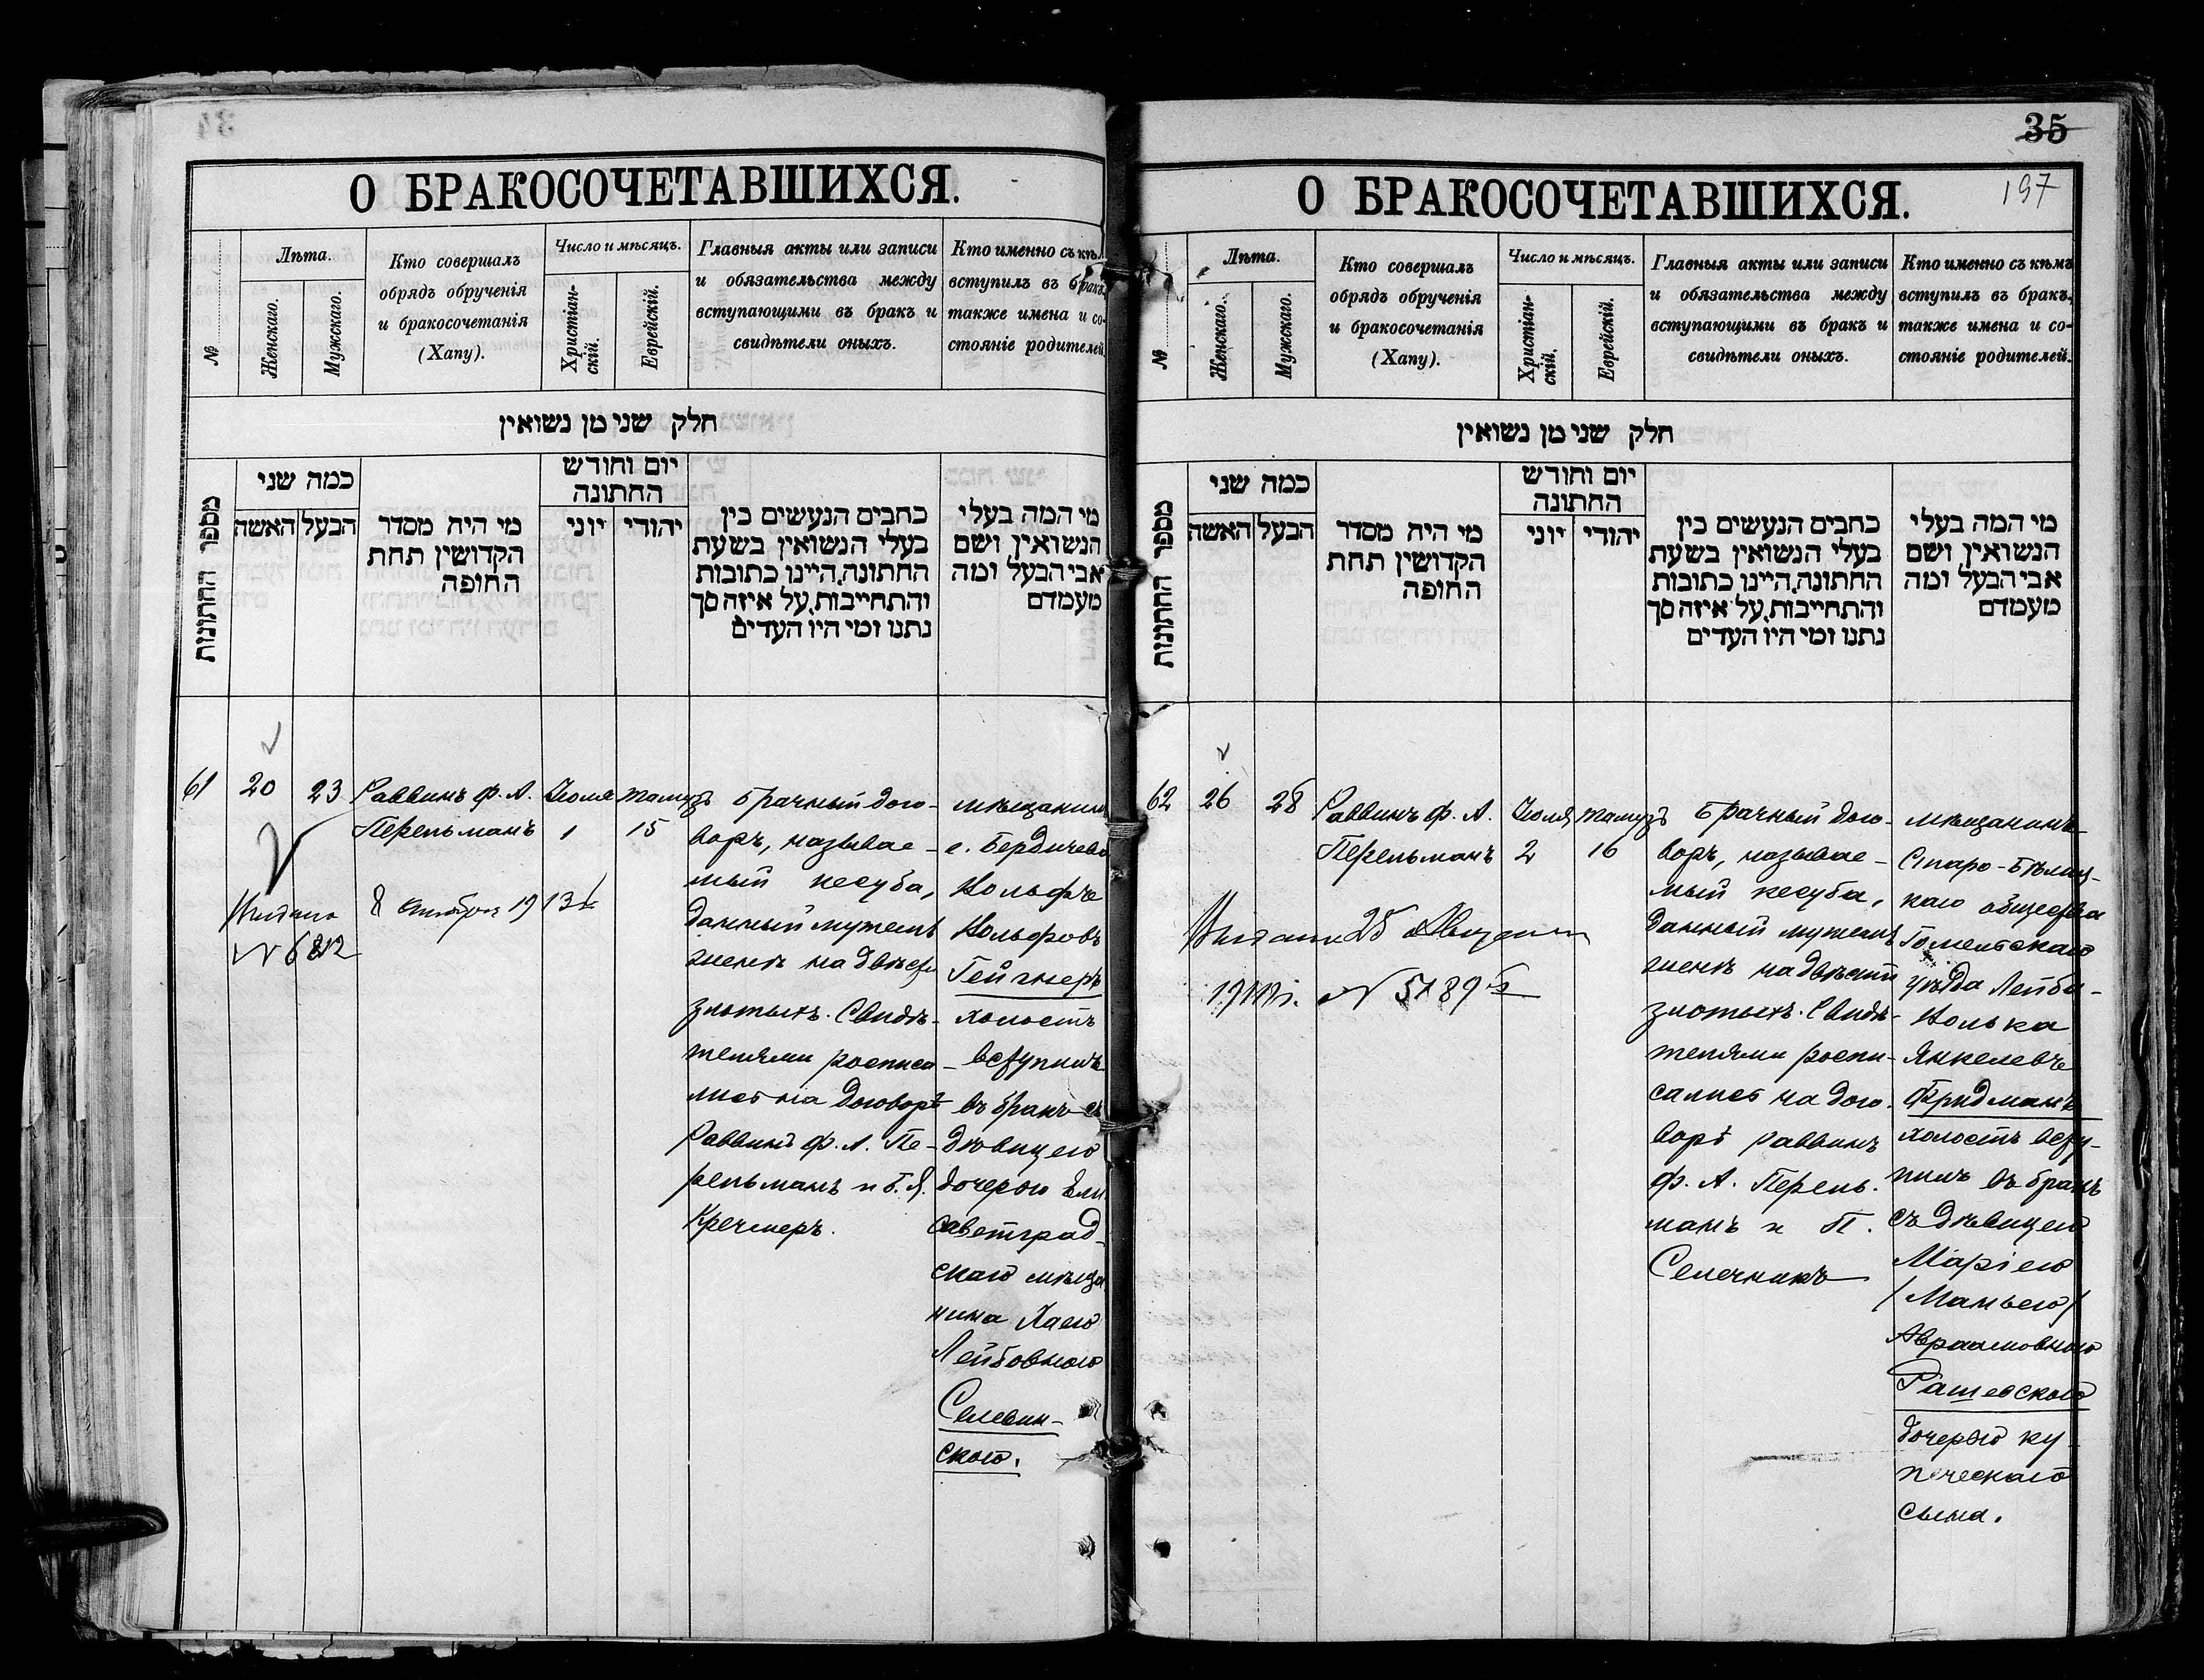 34
О БРАКОСОЧЕТАВШИХСЯ.
№
Лѣта.
Женскаго.
Мужскаго.
Кто совершалъ
обрядъ обрученія
и бракосочетанія
(Хапу).
Число и мѣсяцъ.
Христіан-
скій.
Еврейскій.
Главныя акты или записи
и обязательства между
вступающими въ бракъ и
свидѣтели оныхъ.
Кто именно съ кѣм
вступилъ въ бракъ.
также имена и со-
стояніе родителей.
חלק שני מן נשואין
מספר החתונות
כמה שני
האשה
הבעל
מי היה מסדר
הקדושין תחת
החופה
יום וחודש
החתונה
יוני
יהודי
כתבים הנעשים בין
בעלי הנשואין בשעת
החתונה, היינו כתובות
והתחייבות, על איזה סך
נתנו ומי היו העדים
מי המה בעלי
הנשואין ושם
אבי הבעל ומה
מעמדם
61
20
23
Раввинъ Ф. А.
Перельманъ
Іюля
1
Тамузъ
15
8 октября 1913 г.
№ 6812
Брачный дого-
воръ, называе-
мый кесуба,
данный мужемъ
женѣ на двѣсти
злотыхъ. Свидѣ-
телями росписа-
лись на договорѣ
Раввинъ Ф. А. Пе-
рельманъ и Б. Я.
Кречмеръ.
мѣщанинъ
г. Бердичева
Вольфъ
Вольфовъ
холостъ
вступилъ
въ бракъ съ
дѣвицею
дочерью Ели
саветград-
скаго мѣща
нина Хаею
Лейбовною
Селевин-
скою.
35
197
О БРАКОСОЧЕТАВШИХСЯ.
№
Лѣта.
Женскаго.
Мужскаго.
Кто совершалъ
обрядъ обрученія
и бракосочетанія
(Хапу).
Число и мѣсяцъ.
Христіан-
скій.
Еврейскій.
Главныя акты или записи
и обязательства между
вступающими въ бракъ и
свидѣтели оныхъ.
Кто именно съ кѣмъ
вступилъ въ бракъ.
также имена и со-
стояніе родителей.
חלק שני מן נשואין
מספר החתונות
כמה שני
האשה
הבעל
מי היה מסדר
הקדושין תחת
החופה
יום וחודש
החתונה
יוני
יהודי
כתבים הנעשים בין
בעלי הנשואין בשעת
החתונה, היינו כתובות
והתחייבות, על איזה סך
נתנו ומי היו העדים
מי המה בעלי
הנשואין ושם
אבי הבעל ומה
מעמדם
62
26
28
Раввинъ Ф. А.
Перельманъ
Іюля
2
Тамузъ
16
25 Августа
Брачный дого-
воръ, называе-
мый кесуба,
данный мужемъ
женѣ на двѣсти
злотыхъ. Свидѣ-
телями роспи-
сались на дого-
ворѣ раввинъ
Ф. А. Перель-
манъ и П.
Селечникъ
мѣщанинъ
Старо-Бѣлиц-
каго общества
Гомельскаго
уѣзда Лейба-
Волька
Янкелевъ
Фридманъ
холостъ всту-
пилъ въ бракъ
съ дѣвицею
Маріею
/Маньею/
Авраамовною
Рашевскою
дочерью ку
печескаго
сына.